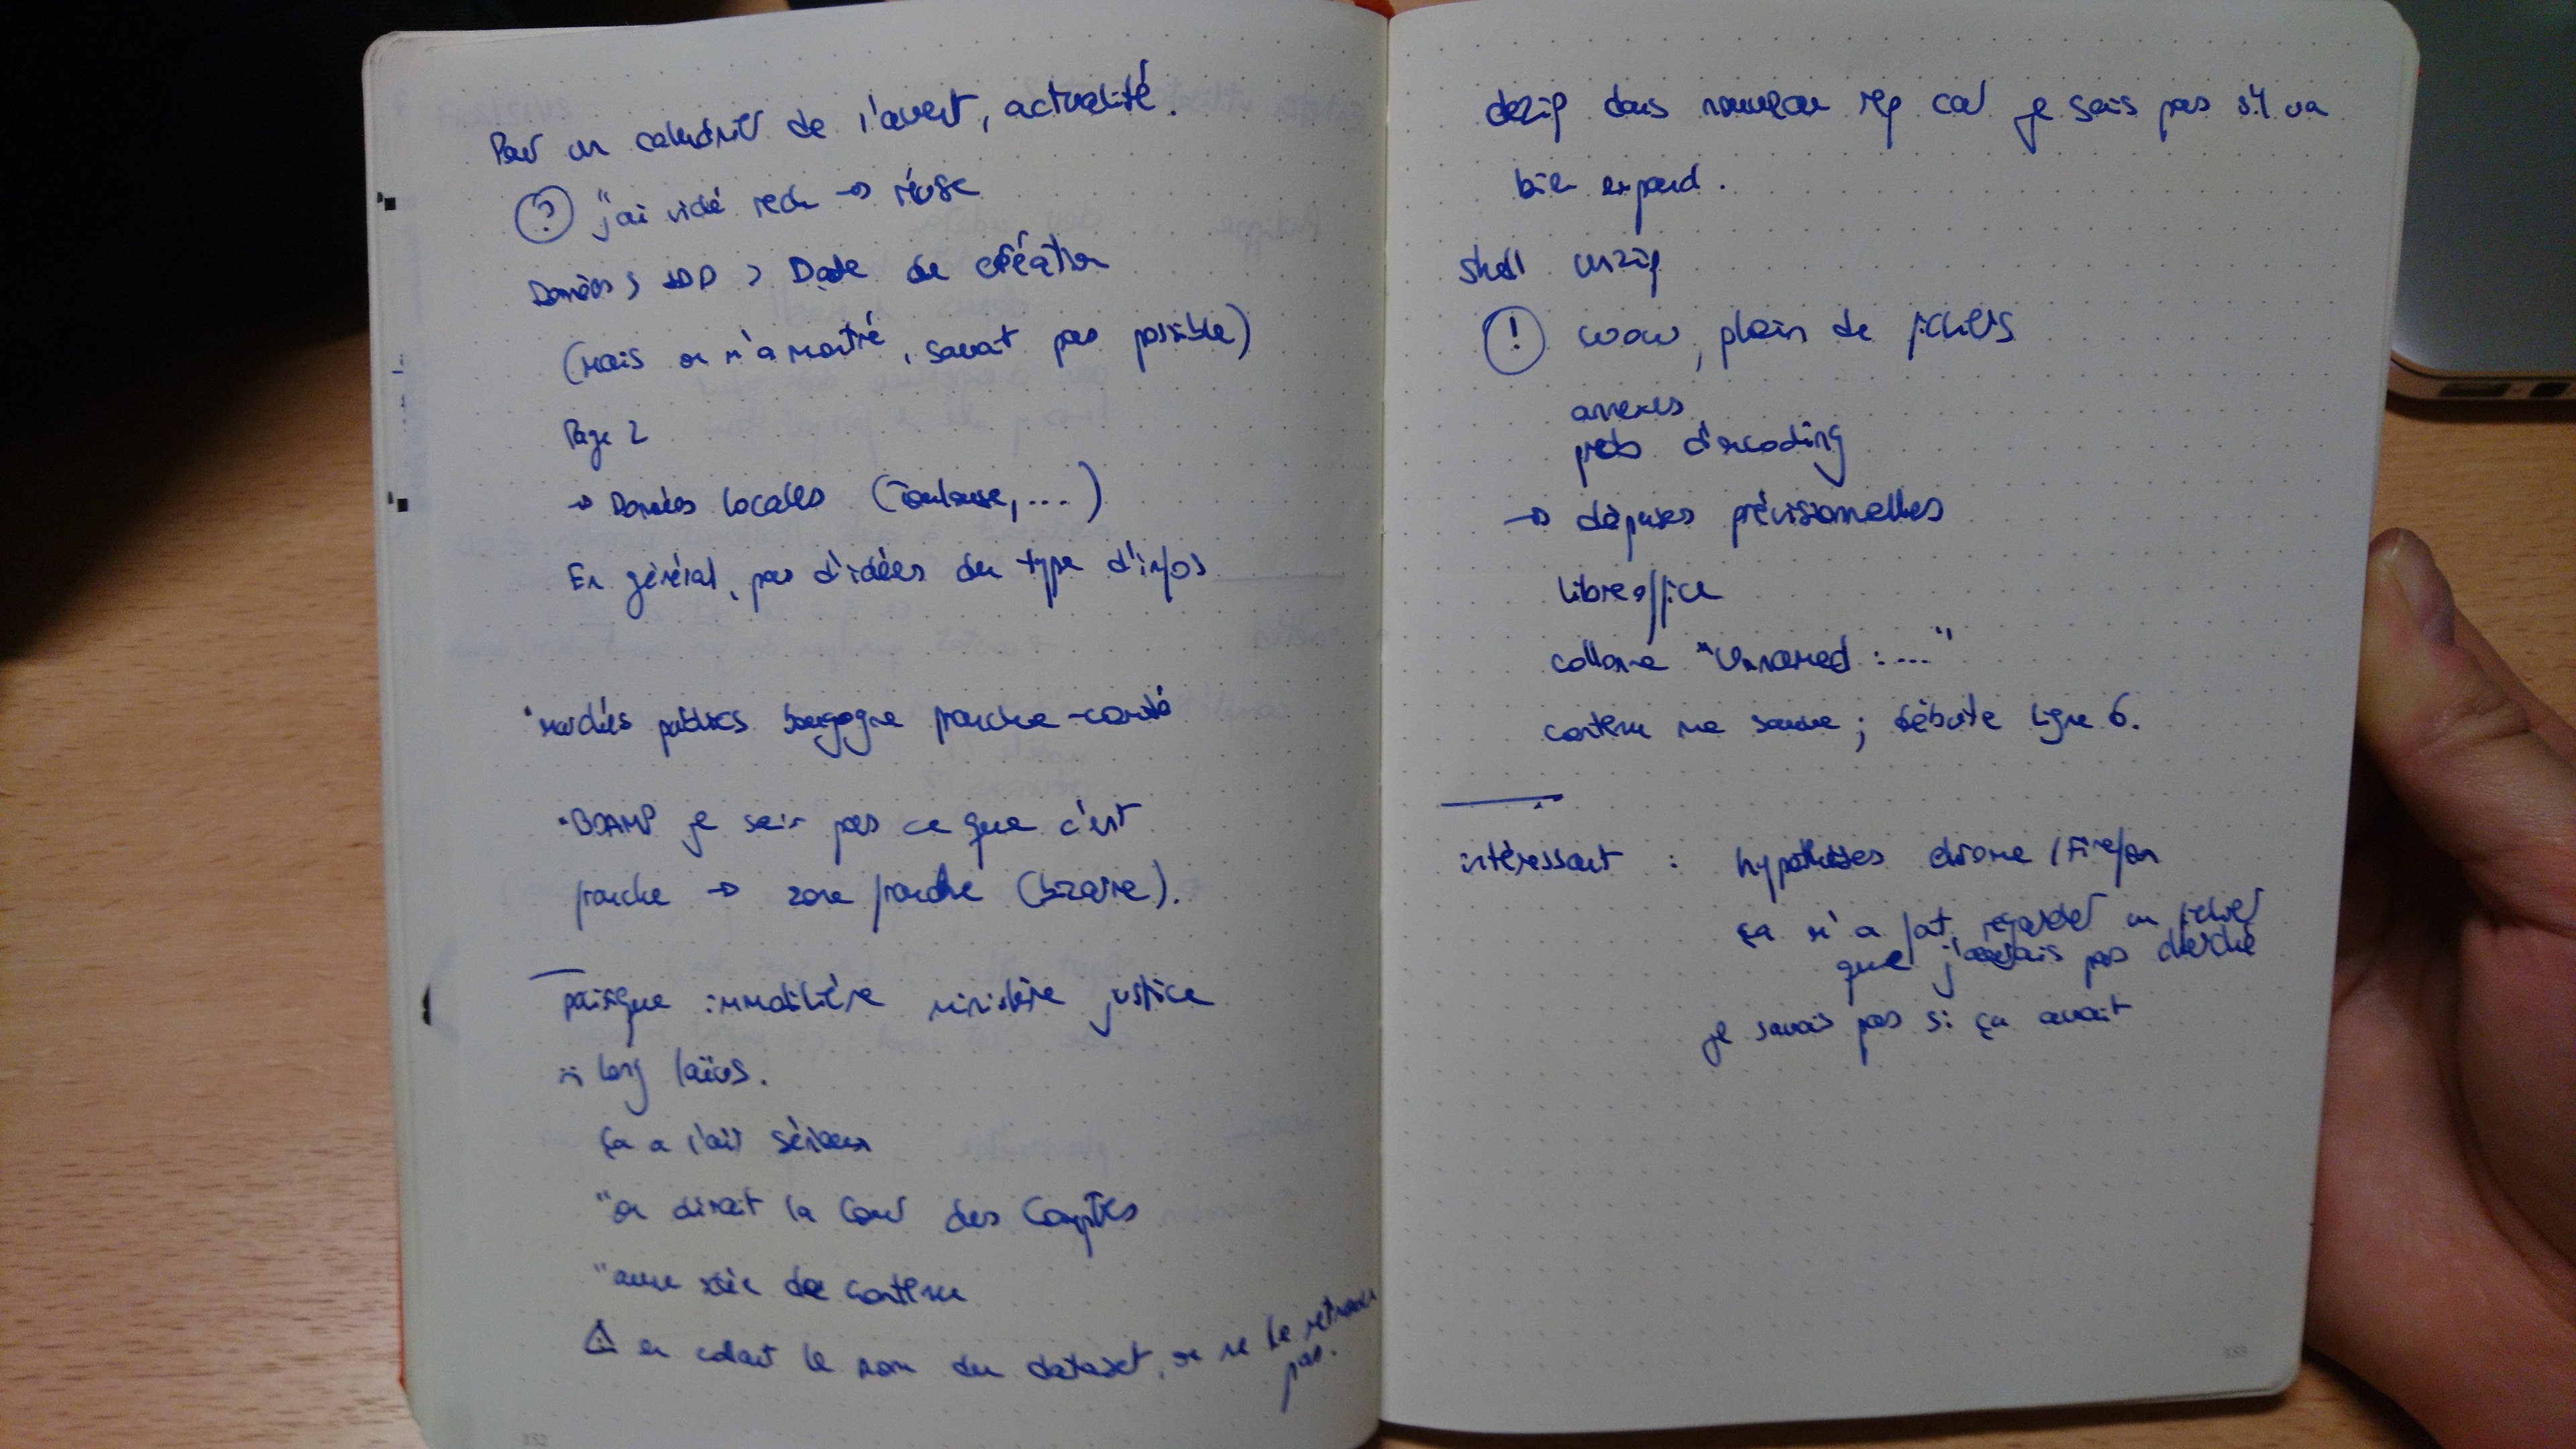 Pour un calendrier de l'avent, actualité.
? "j'ai vidé rech → réuse
Données > JDD > Date de création
(mais on m'a montré, savait pas possible)
Page 2
→ Données locales (Toulouse, ...)
En général, pas d'idées du type d'infos
• marchés publics bourgogne franche-comté
• BOAMP je sais pas ce que c'est
franche → zone franche (bizarre).
politique immobilière ministère justice
long laïus.
ça a l'air sérieux
"on dirait la Cour des Comptes
"aucune idée de contenu
⚠ en collant le nom du dataset, on ne le retrouve
pas.
152
dezip dans nouveau rep car je sais pas s'il va
bien expand.
shell unzip
! wow, plein de fichiers
annexes
prob d'encoding
→ dépenses prévisionnelles
libreoffice
colonne "Unnamed : ..."
contenu me saoule ; débute ligne 6.
intéressant : hypothèses chrome / Firefox
ça m'a fait regarder un fichier
que j'aurais pas cherché
je savais pas si ça avait
153